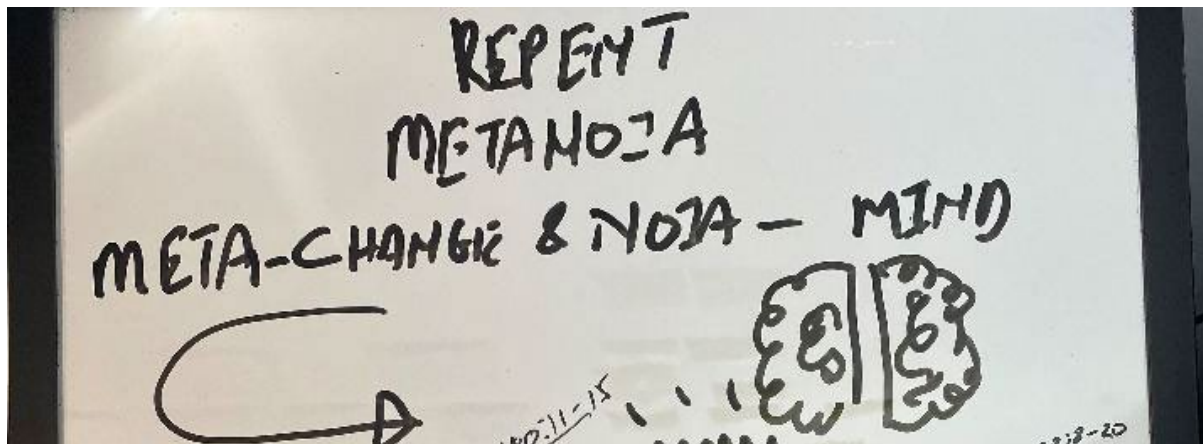 REPENT
METANOIA
META-CHANGE & NOIA - MIND
:11-15
:18-20